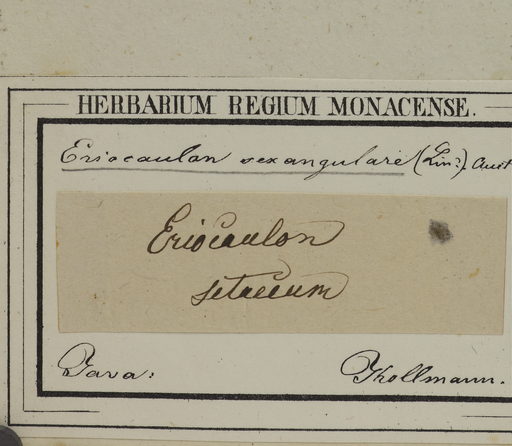 HERBARIUM REGIUM MONACENSE.
Eriocaulon sexangulare (Lin?). Auct
Eriocaulon
setaceum
Java: Thollmann.